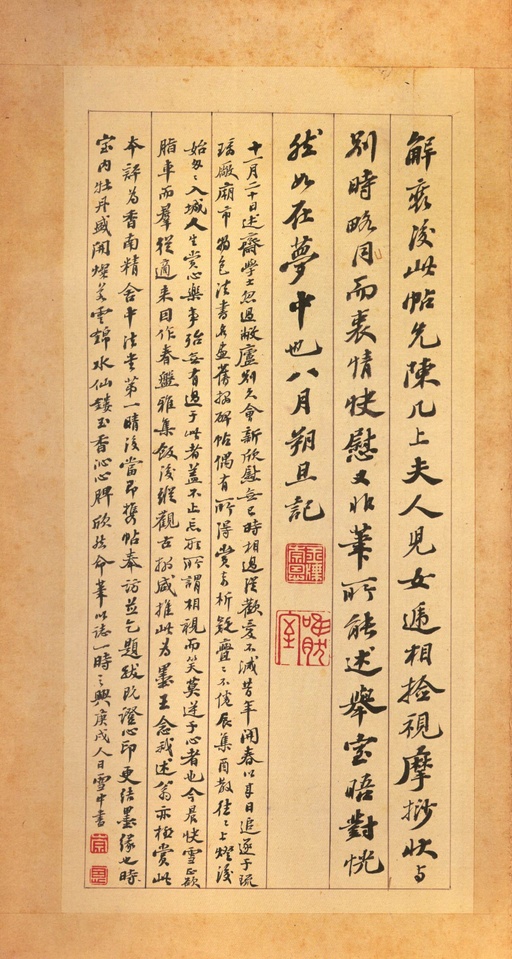 解裹後此帖先陳几上夫人兒女遞相捡視摩挲狀与
别時略同而衷情快慰又非筆所能述舉室晤對恍
然如在夢中也八月朔旦記
十二月二十日述齋學士忽過敝廬别久會新欣慰無已時相過從歡愛不減昔年開春以來日追逐于琉
璃廠廟市物色法書名畫舊搨碑帖偶有所得賞奇析疑亹々不倦辰集酉散往々上燈後
始匆々入城人生賞心樂事殆無有過于此者蓋不止忘形所謂相視而笑莫逆于心者也今晨快雪正欲
脂車而羣從適來因作春盤雅集飯後縱觀古搨咸推此為墨王念我述翁亦極賞此
本評為香南精舍中法書第一晴後當即攜帖奉訪並乞題跋既證心印更結墨緣也時
室内牡丹盛開燦若雲錦水仙鏤玉香沁心脾欣然命筆以誌一時之興庚戌人日雪中書